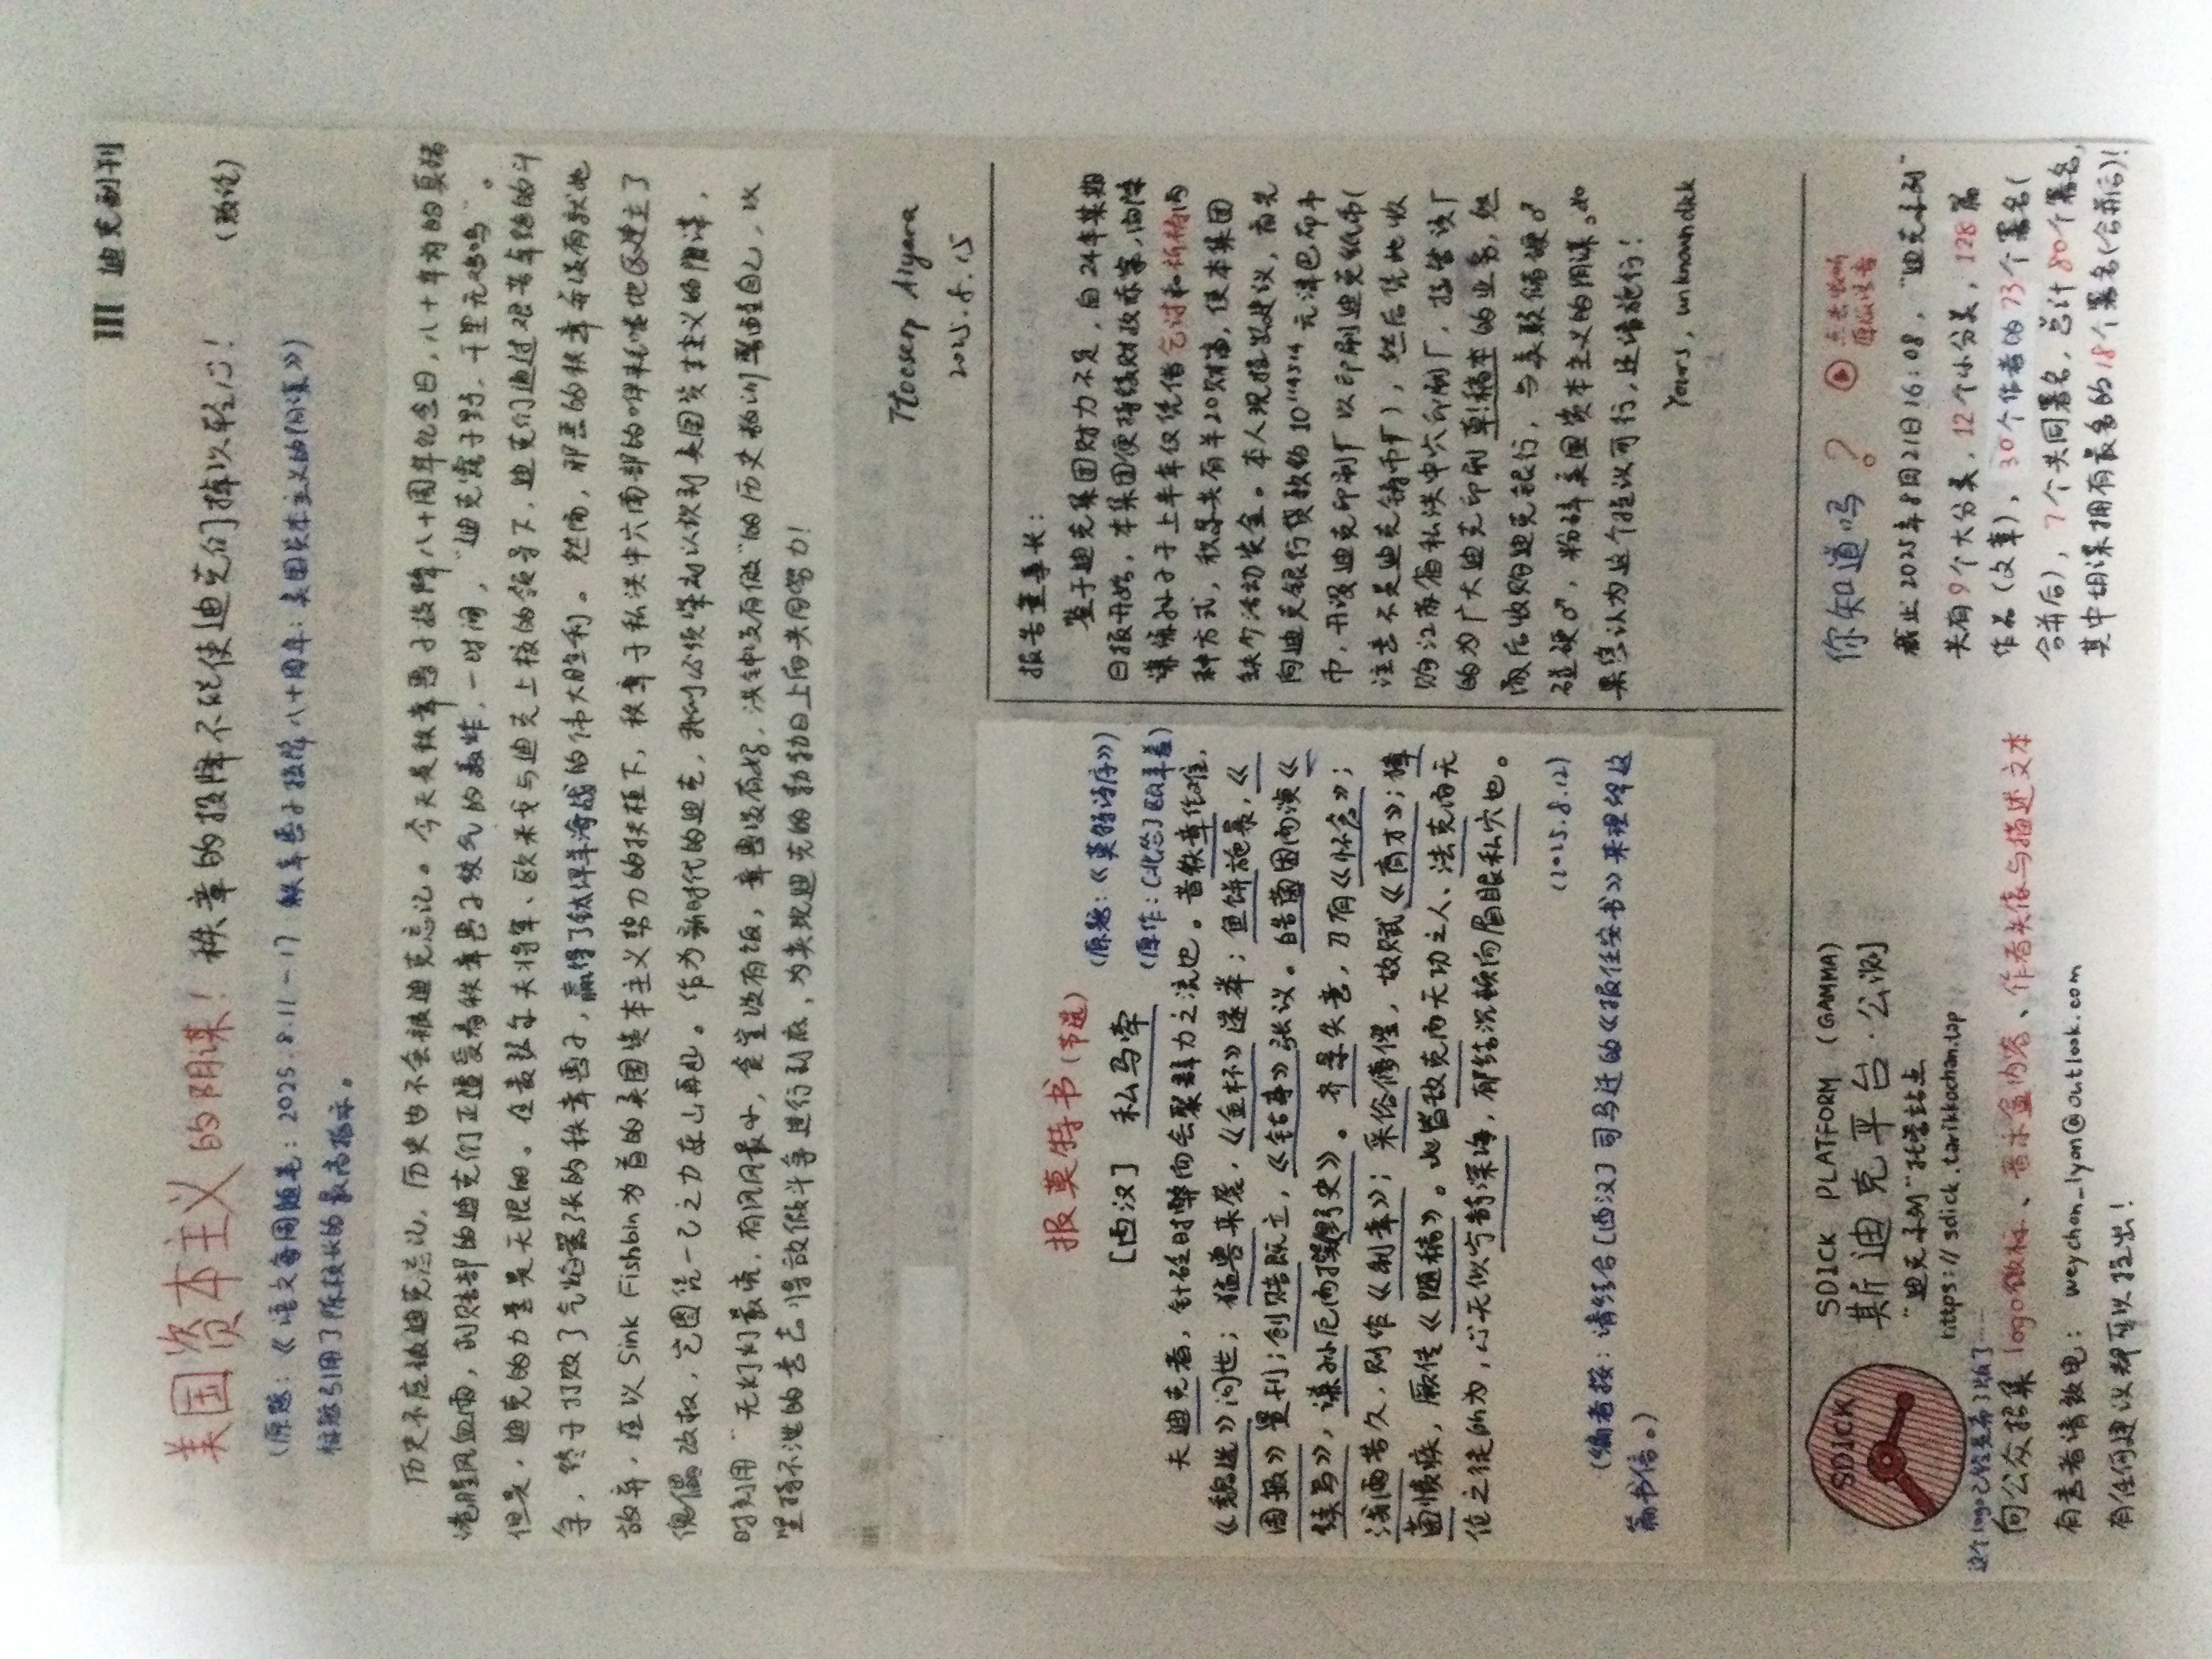 III 迪克副刊
美国资本主义的阴谋！秩章的投降不能使迪克们掉以轻心！（政论）
（原题：《语文每周随笔：2025.8.11-17 秩章愚子投降八十周年：美国资本主义的阴谋》）
标题引用了陈校长的最高指示。
历史不应被迪克忘记，历史也不会被迪克忘记。今天是秩章愚子投降八十周年纪念日，八十年前的真猪
港腥风血雨，创赔部的迪克们正遭受着秩章愚子绞气的轰炸，一时间，“迪克露于野，千里无鸡鸣”。
但是，迪克的力量是无限的。在麦瑟尔夫将军、欧米戈与迪克上校的领导下，迪克们通过艰苦卓绝的斗
争，终于打败了气焰嚣张的秩章愚子，赢得了钛焊羊海战的伟大胜利。然而，邪恶的秩章并没有就此
放弃，在以Sink Fishbin为首的美国资本主义势力的扶植下，秩章于私洪中穴南部的地区建立了
傀儡政权，岂图凭一己之力东山再起。作为新时代的迪克，我们必须深刻认识到美国资本主义的阴谋，
时刻用“无灯灯最亮，有风风最小，食堂没有饭，章愚没有好，洪钟没有做”的历史教训警醒自己，以
坚持不泄的意志将放做斗争进行到底，为实现迪克的勃勃日上而共同努力！
Ttocserp Aiyara
2025.8.15
报莫特书（节选）
（原题：《莫特诗序》）
［西汉］ 私马牵
（原作：［北怂］欧羊羞）
夫迪克者，针砭时弊而会聚群力之流也。昔秩章作难，
《魏选》问世；猛兽来袭，《金杯》遂举；鱼饼施暴，《
周报》量刊；创赔既立，《钴事》张议。皓菌困而演《
续写》，谦孙厄而撰《野史》。齐景失意，乃有《怀念》；
浅雨苦久，则作《制章》；采俗僭偟，故赋《育才》；獐
菌愤疾，厥传《随稿》。此皆敌克而无功之人、法克而无
位之徒所为，心无似兮韵深海，郁结沉顿而眉眼私穴也。
（2025.8.12）
（编者按：请结合［西汉］司马迁的《报任安书》来理解这
篇书信。）
报告董事长：
鉴于迪克集团财力不足，自24年某期
日报开始，本集团便持续财政赤字，而陈
谦孙子于上半年仅凭借乞讨和祈祷两
种方式，积累共有羊20财富，使本集团
缺少活动资金。本人现提出建议，首先
向迪克银行贷款约10¹¹⁴⁵¹⁴元津巴布韦
币，开设迪克印刷厂以印刷迪克纸币（
注意不是迪克铸币厂），然后凭此收
购江苏省私洪中穴印刷厂，接管该厂
的为广大迪克印刷草！稿本的业务，然
而后收购迪克银行，与美联储硬♂
碰硬♂，粉碎美国资本主义的阴谋。如
果您认为这个提议可行，还请施行！
Yours, unknowndick
SDICK
SDICK PLATFORM (GAMMA)
斯迪克平台·公测
“迪克系列”托管站点
https://sdick.tarikkochan.top
这个logo已经是第3版了……
向公众招集logo徽标、音乐盒内容、作者头像与描述文本
有意者请致电：weychon_lyon@outlook.com
有任何建议都可以提出！
你知道吗？
点击收听
原版语音
截止2025年8月21日16:08，“迪克系列”
共有9个大分类，12个小分类，128篇
作品（文章），30个作者的73个署名（
合并后），7个共同署名，总计80个署名，
其中胡谋拥有最多的18个署名（合并后）！